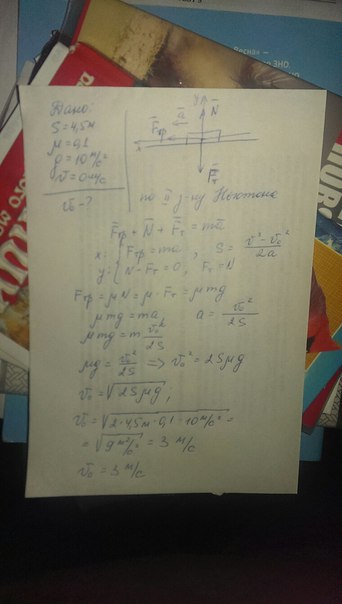 Дано:
S = 4,5 м
μ = 0,1
g = 10 м/с²
v = 0 м/с
v₀ - ?
y
N
a
Fтр
x
Fт
по II з-ну Ньютона
Fтр + N + Fт = ma
x: { Fтр = ma , S = (v² - v₀²)/2a
y: { N - Fт = 0, Fт = N
Fтр = μN = μ · Fт = μmg
μmg = ma, a = v₀²/2S
μmg = m v₀²/2S
μg = v₀²/2S => v₀² = 2Sμg
v₀ = √2Sμg ;
v₀ = √2·4,5м·0,1·10м/с² =
= √9 м²/с² = 3 м/с
v₀ = 3 м/с